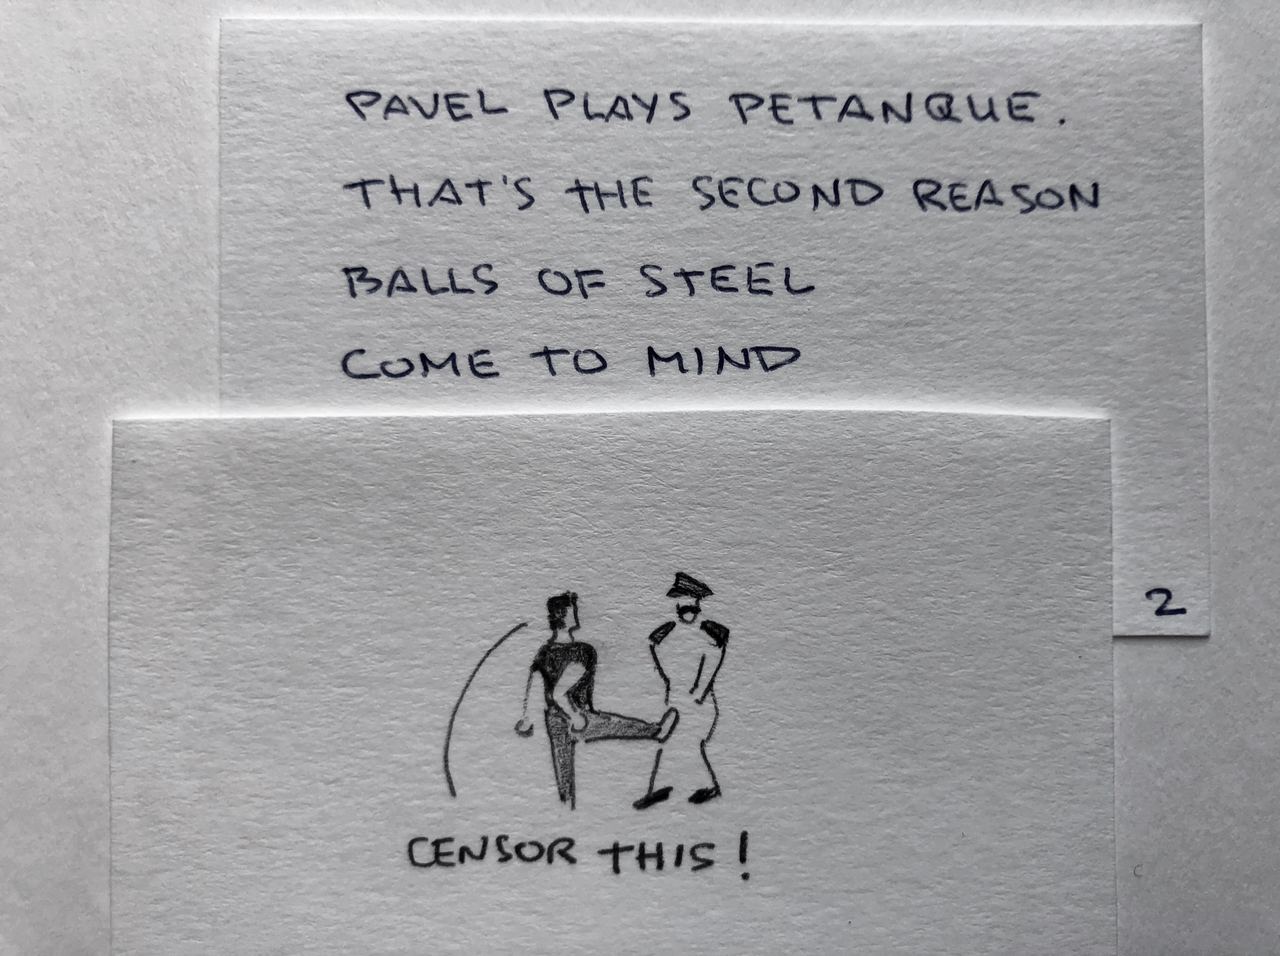 PAVEL PLAYS PETANQUE.
THAT'S THE SECOND REASON
BALLS OF STEEL
COME TO MIND
2
CENSOR THIS!